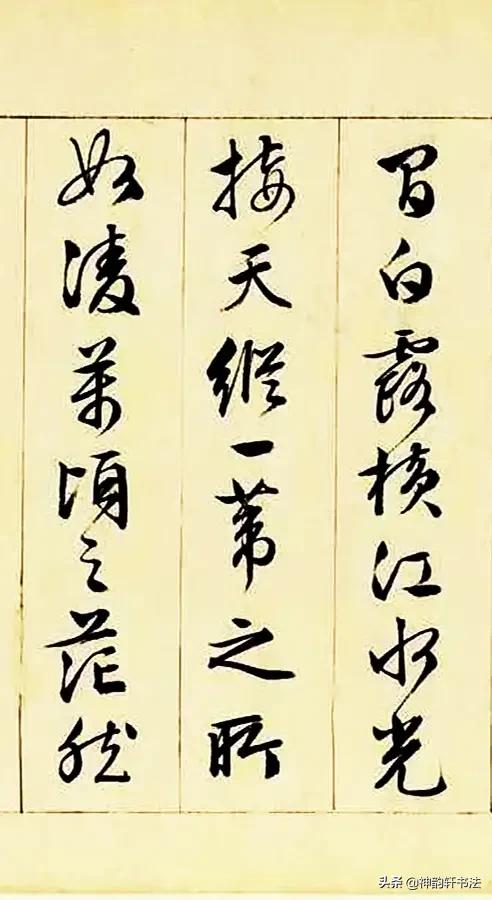 間白露横江水光
接天縱一葦之所
如凌萬頃之茫然
头条 @神韵轩书法